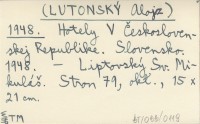 (LUTONSKÝ Alojz)
1948. Hotely V Českosloven-
skej Republike. Slovensko.
1948. — Liptovský Sv. Mi-
kuláš. Stron 79, okł., 15 x
21 cm.
TM